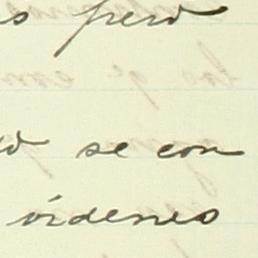 s pero
se con
órdenes